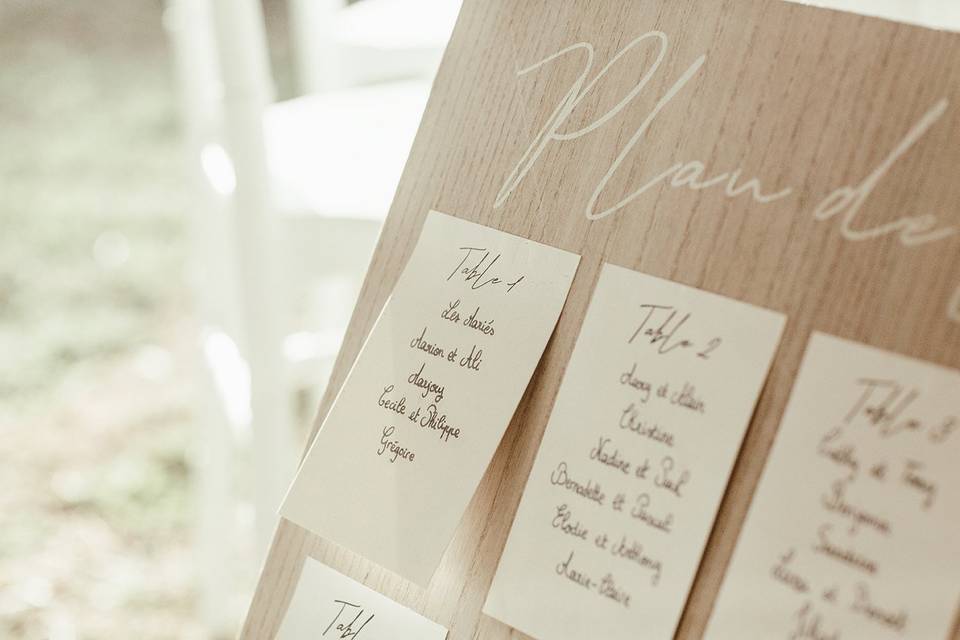 Plan de
Table 1
Les Mariés
Marion et Ali
Marjory
Cécile et Philippe
Grégoire
Table 2
et Alain
Christine
Nadine et Paul
Bernadette et Pascal
Elodie et Anthony
Marie-Claire
Table 3
Cathy et
Benjamin
Sandrine
et
Table